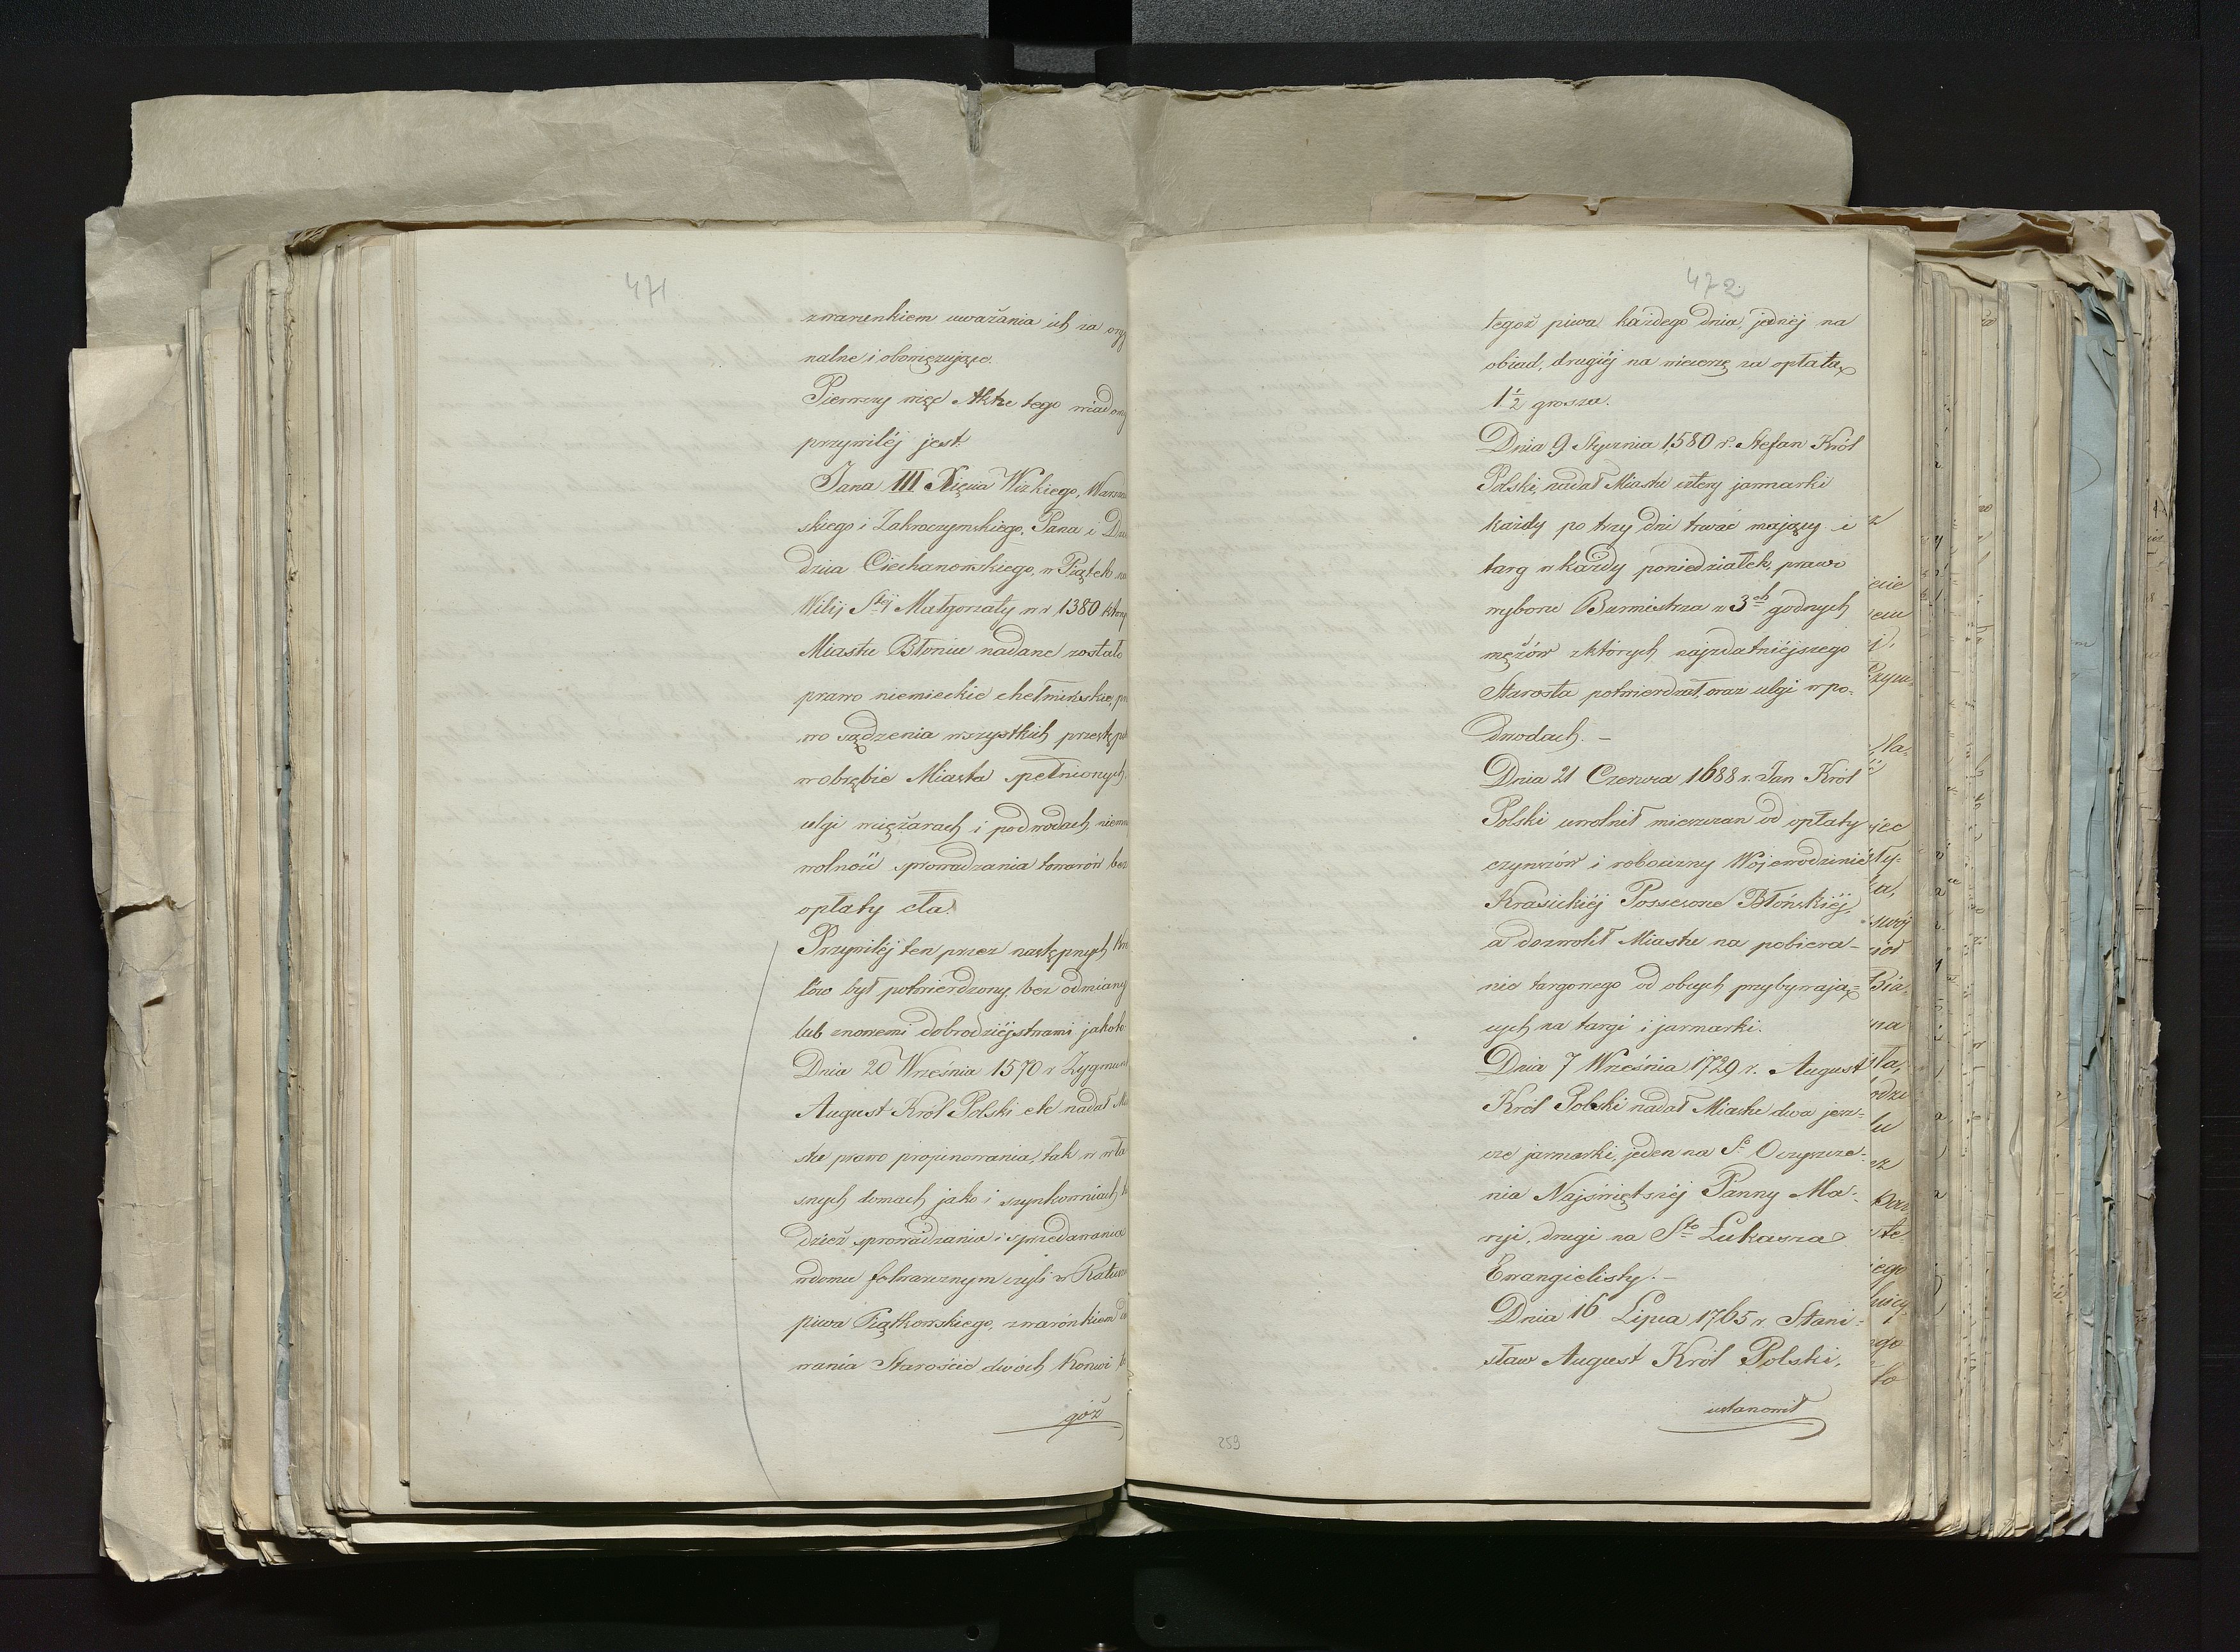 471
zwarunkiem uważania ich za orygi
nalne i obowięzujące.
Pierwszy więc Aktu tego wiadomy
przywiléj jest
Jana III Xięcia Wizkiego, Warszaw
skiego i Zakroczymskiego, Pana i Dzie
dzica Ciechanowskiego, w Piątek na
Wilij Stej Małgorzaty w r 1380 którym
Miastu Błoniu nadane zostało
prawo niemieckie chełmińskie, pra
wo sądzenia wszystkich przestęp
w obrębie Miasta spełnionych
ulgi w ciężarach i podwodach, niem
wolność sprowadzania towarów bez
opłaty cła.
Przywiléj ten przez następnych Kró
lów był potwierdzony, bez odmiany
lub znowemi dobrodziéjstwami jakoto
Dnia 20 Września 1570 r Zygmunt
August Król Polski etc nadał Mia
stu prawo propinowania, tak w wła
snych domach jako i szynkowniach
dzież sprowadzania i sprzedawania
wdomu folwarcznym czyli w Ratuszu
piwa Piątkowskiego, zwarónkiem da
wania Starościé dwóch Konwi te
góż
472
tegoż piwa każdego dnia, jednéj na
obiad, drugiéj na wieczerzę za opłatą
1½ grosza.
Dnia 9 Stycznia 1580 r. Stefan Król
Polski, nadał Miastu cztery jarmarki
każdy po trzy dni trwać mający i
targ w każdy poniedziałek, prawo
wyboru Burmistrza z 3ch godnych
mężów zktórych najzdatniéjszego
Starosta potwierdzał, oraz ulgi w po=
dwodach. –
Dnia 21 Czerwca 1688 r. Jan Król
Polski uwolnił mieszczan od opłaty
czynszów i robocizny Wojewodzinie
Krasickiéj Possesorce Błońskiéj,
a dozwolił Miastu na pobiera–
nie targowego od obcych przybywają=
cych na targi i jarmarki.
Dnia 7 Września 1729 r. August
Król Polski nadał Miastu dwa jesz=
cze jarmarki, jeden na S. Oczyszcze=
nia Najświętszéj Panny Ma=
ryi, drugi na Sto Łukasza
Ewangielisty. –
Dnia 16 Lipca 1765 r Stani=
sław August Król Polski,
ustanowił
259